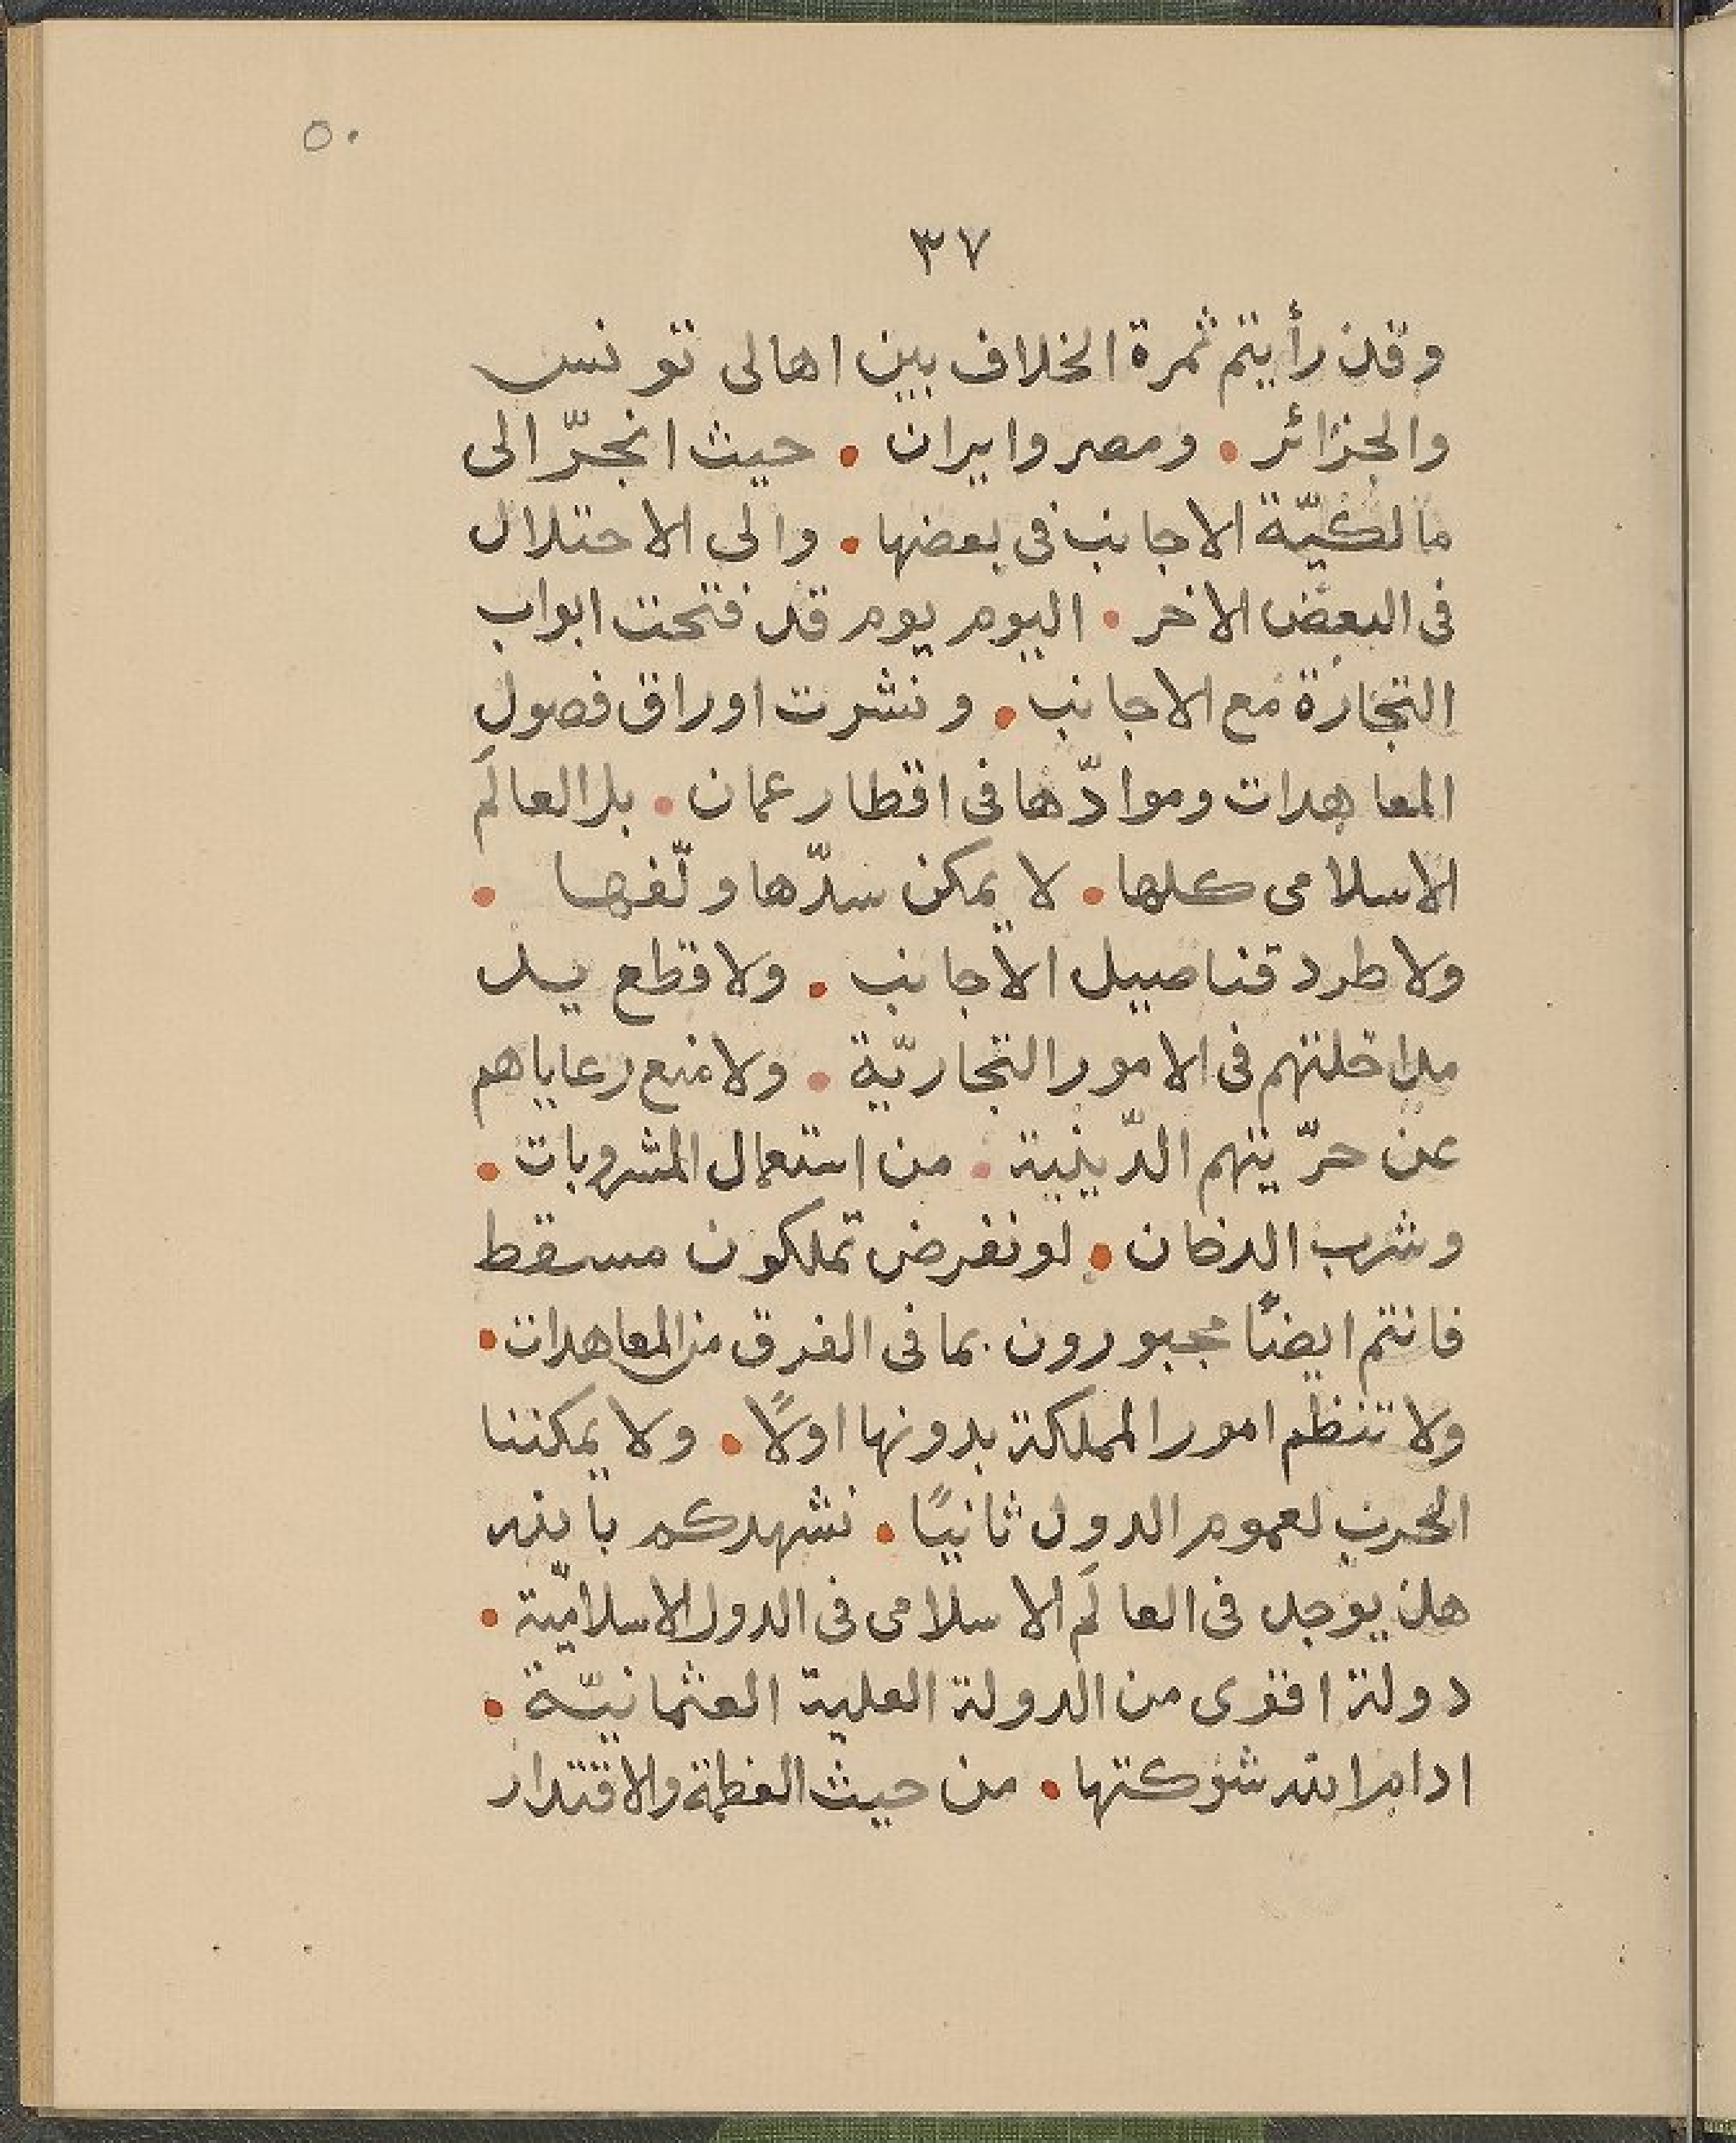 ٥٠
٣٧
وقد رأيتم ثمرة الخلاف بين اهالى تونس
والجزائر • ومصر وايران • حيث انجرّ الى
مالكيّة الاجانب فى بعضها • والى الاحتلال
فى البعض الاخر • اليوم يوم قد فتحت ابواب
التجارة مع الاجانب • ونشرت اوراق فصول
المعاهدات وموادّها فى اقطار عمان • بل العالَم
الاسلامى كلها • لا يمكن سدّها ولفّها •
ولا طرد قناصيل الاجانب • ولا قطع يد
مداخلتهم فى الامور التجاريّة • ولا منع رعاياهم
عن حرّيتهم الدّينية • من استعمال المشروبات •
وشرب الدخان • لو نفرض تملكون مسقط
فانتم ايضًا مجبورون بما فى الفرق من المعاهدات •
ولا تنظم امور المملكة بدونها اولًا • ولا يمكننا
الحرب لعموم الدول ثانيًا • نشهدكم بالله
هل يوجد فى العالَم الاسلامى فى الدول الاسلاميّة •
دولة اقوى من الدولة العلية العثمانيّة •
ادام الله شوكتها • من حيث العظمة والاقتدار